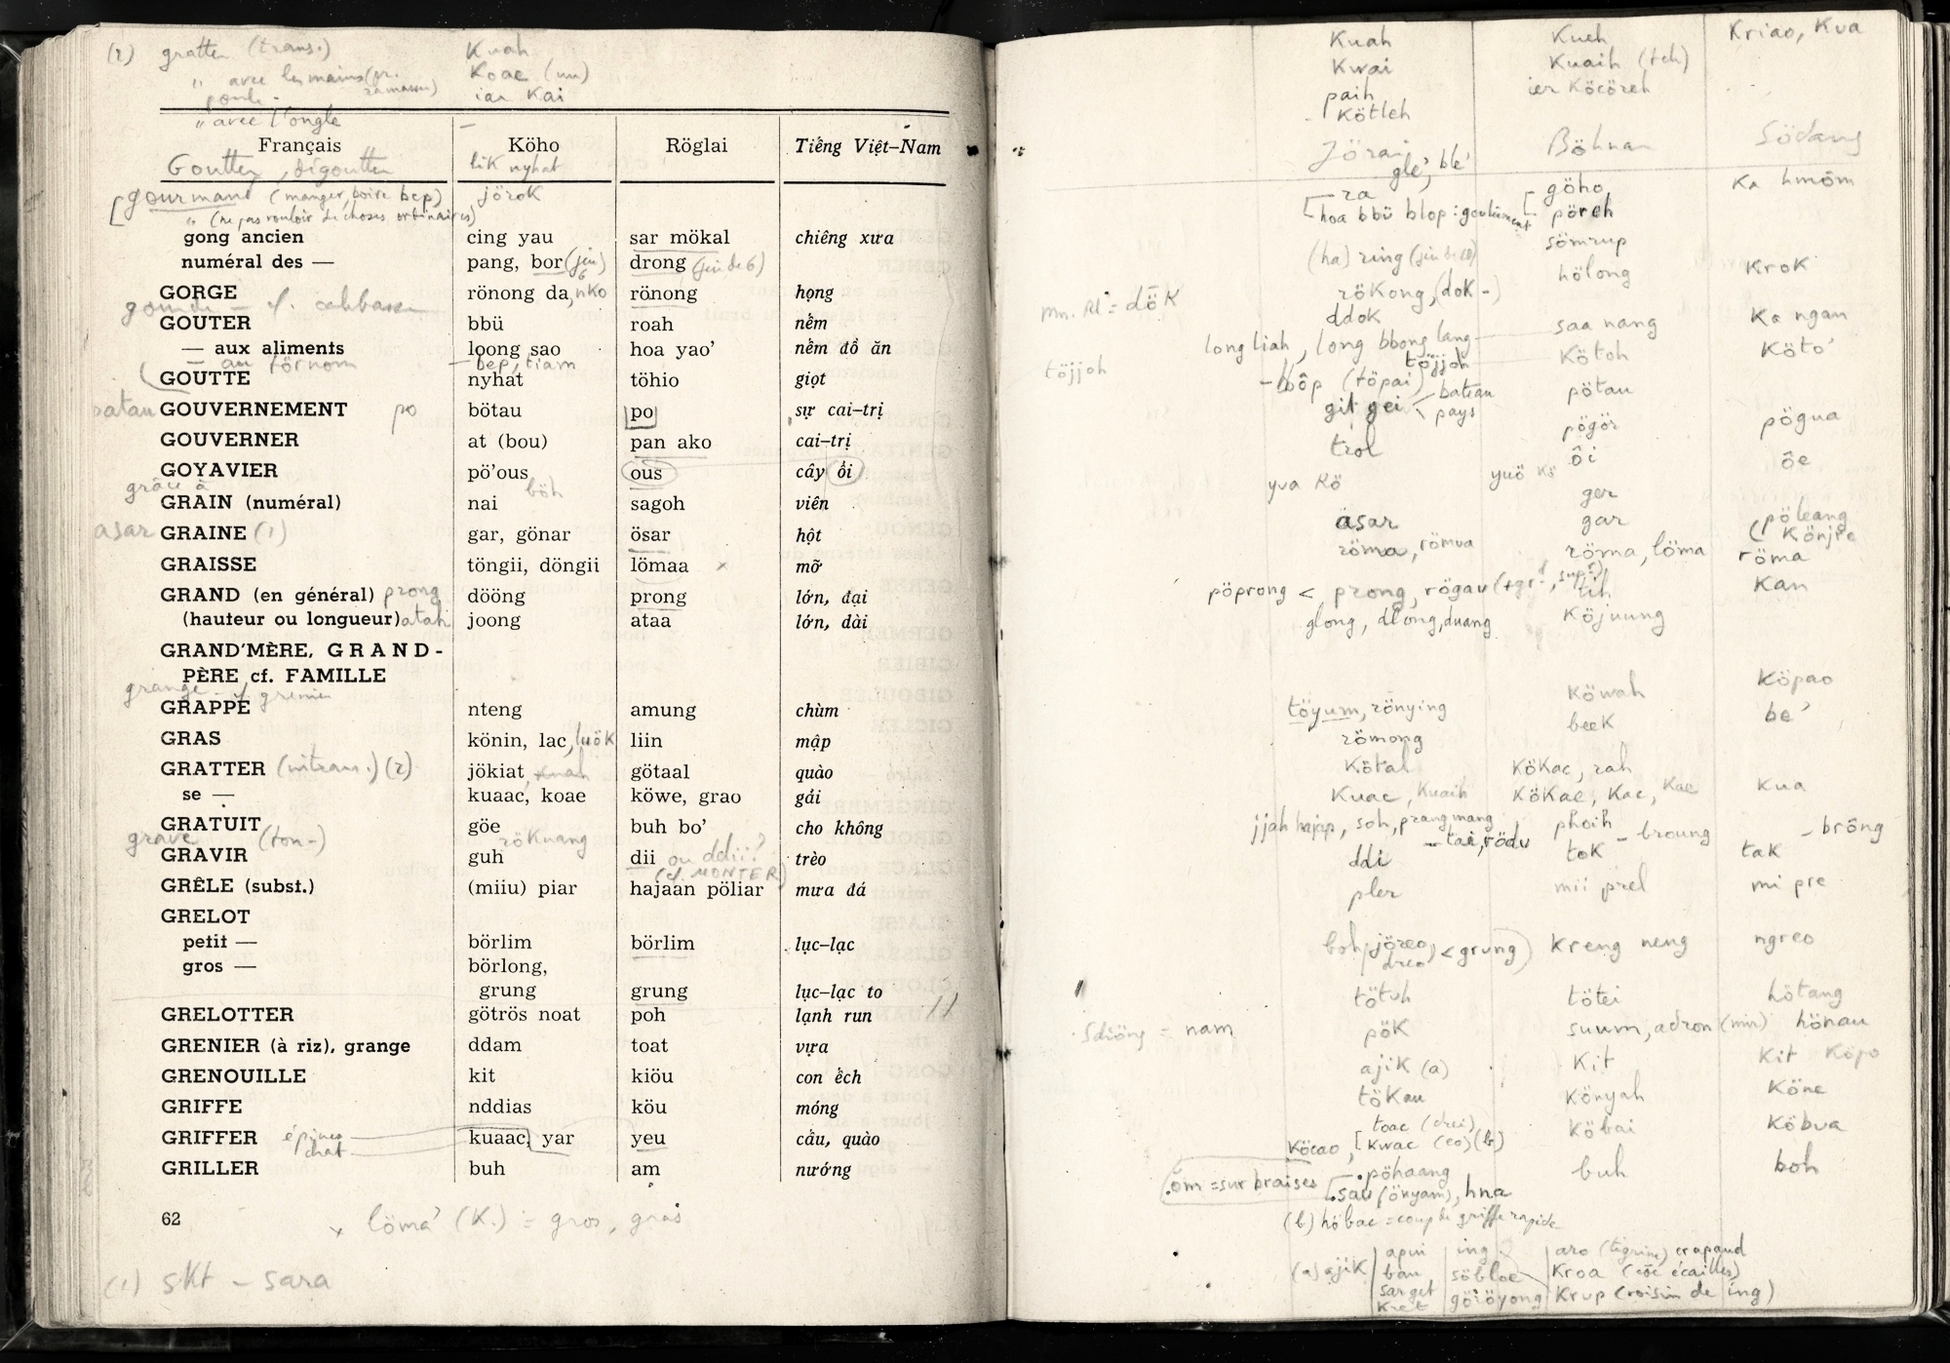 (2) gratter (trans.) Kuah
" avec les mains (pr. ramasser) Koae (mu)
poule - iar Kai
" avec l'ongle
Français Köho Röglai Tiếng Việt–Nam
Goutter, dégoutter lik nyhat
[gourmand (manger, boire bcp) jörok
" (ne pas vouloir de choses ordinaires)
gong ancien cing yau sar mökal chiêng xưa
numéral des — pang, bor (jeu 6) drong (jeu de 6)
GORGE rönong da, nko rönong họng
gourde — cf. calebasse
GOUTER bbü roah nếm
— aux aliments loong sao hoa yao' nếm đồ ăn
— au törnom — bep, tiam
GOUTTE nyhat töhio giọt
patau GOUVERNEMENT po bötau po sự cai–trị
GOUVERNER at (bou) pan ako cai–trị
GOYAVIER pö'ous ous cây ổi
grâce à böh
GRAIN (numéral) nai sagoh viên
asar GRAINE (1) gar, gönar ösar hột
GRAISSE töngii, döngii lömaa x mỡ
GRAND (en général) prong dööng prong lớn, đại
(hauteur ou longueur) atah joong ataa lớn, dài
GRAND'MÈRE, GRAND-
PÈRE cf. FAMILLE
grange - cf. grenier
GRAPPE nteng amung chùm
GRAS könin, lac, luök liin mập
GRATTER (intrans.) (2) jökiat, kuah götaal quào
se — kuaac, koae köwe, grao gải
GRATUIT göe buh bo' cho không
grave (ton-) röKuang
GRAVIR guh dii ou ddii? trèo
(cf. MONTER)
GRÊLE (subst.) (miiu) piar hajaan pöliar mưa đá
GRELOT
petit — börlim börlim lục–lạc
gros — börlong,
grung grung lục–lạc to
GRELOTTER götrös noat poh lạnh run
GRENIER (à riz), grange ddam toat vựa
GRENOUILLE kit kiöu con ếch
GRIFFE nddias köu móng
GRIFFER épines chat kuaac, yar yeu cấu, quào
GRILLER buh am nướng
62
x lömaʼ (K.) = gros, gras
(1) skt - sara
Kuah Kueh Kriao, Kua
Kwai Kuaih (teh)
paih ier Köcöreh
Kötleh
Jörai Böhnar Södang
gleʼ, bleʼ
ra göho Ka hmôm
[hoa bbü blop : gouliement [pöreh
sömrup
(ha) ring (jeu de 10) hölong KroK
röKong, (dok -)
mn. Rl = döK ddok saa nang Ka ngan
long liah, long bbong lang
töjjoh töjjoh Kötoh Kötoʼ
- bbôp (töpai) pötau
git gei < bateau
pays pögör pögua
trol ôi ôe
yua Kö yuö Kö
ger
asar gar pöleang
röma, römua röma, löma (Könjre
röma
pöprong < prong, rögau (+grd, supr) tih Kan
glong, dlong, duang Köjuung
Köwah Köpao
töyum, rönying beeK beʼ
römong
Kötal KöKac, rah
Kuac, Kuaih KöKae, Kac, Kae Kua
jjah hajap, soh, prang mang phoih - broung - brông
- tai, rödu
ddi toK tak
pler mii prel mi pre
boh (jöreo, dreo) < grung) Kreng neng ngreo
tötuh tötei hötang
Sdiöng = nam pöK suum, adron (min) hönau
ajiK (a) Kit Kit Köpo
töKau Könyah Köne
toac (drei) Köbai Köbua
Köcao, [Kwac (eo) (b)
öm = sur braises pöhaang buh boh
sau (önyam), hna
(b) höbac = coup de griffe rapide
(a) ajiK apui ing aro (tigrine) crapaud
bau söbloe Kroa (côc écailles)
sarget göröyong Krup (voisin de ing)
Kret